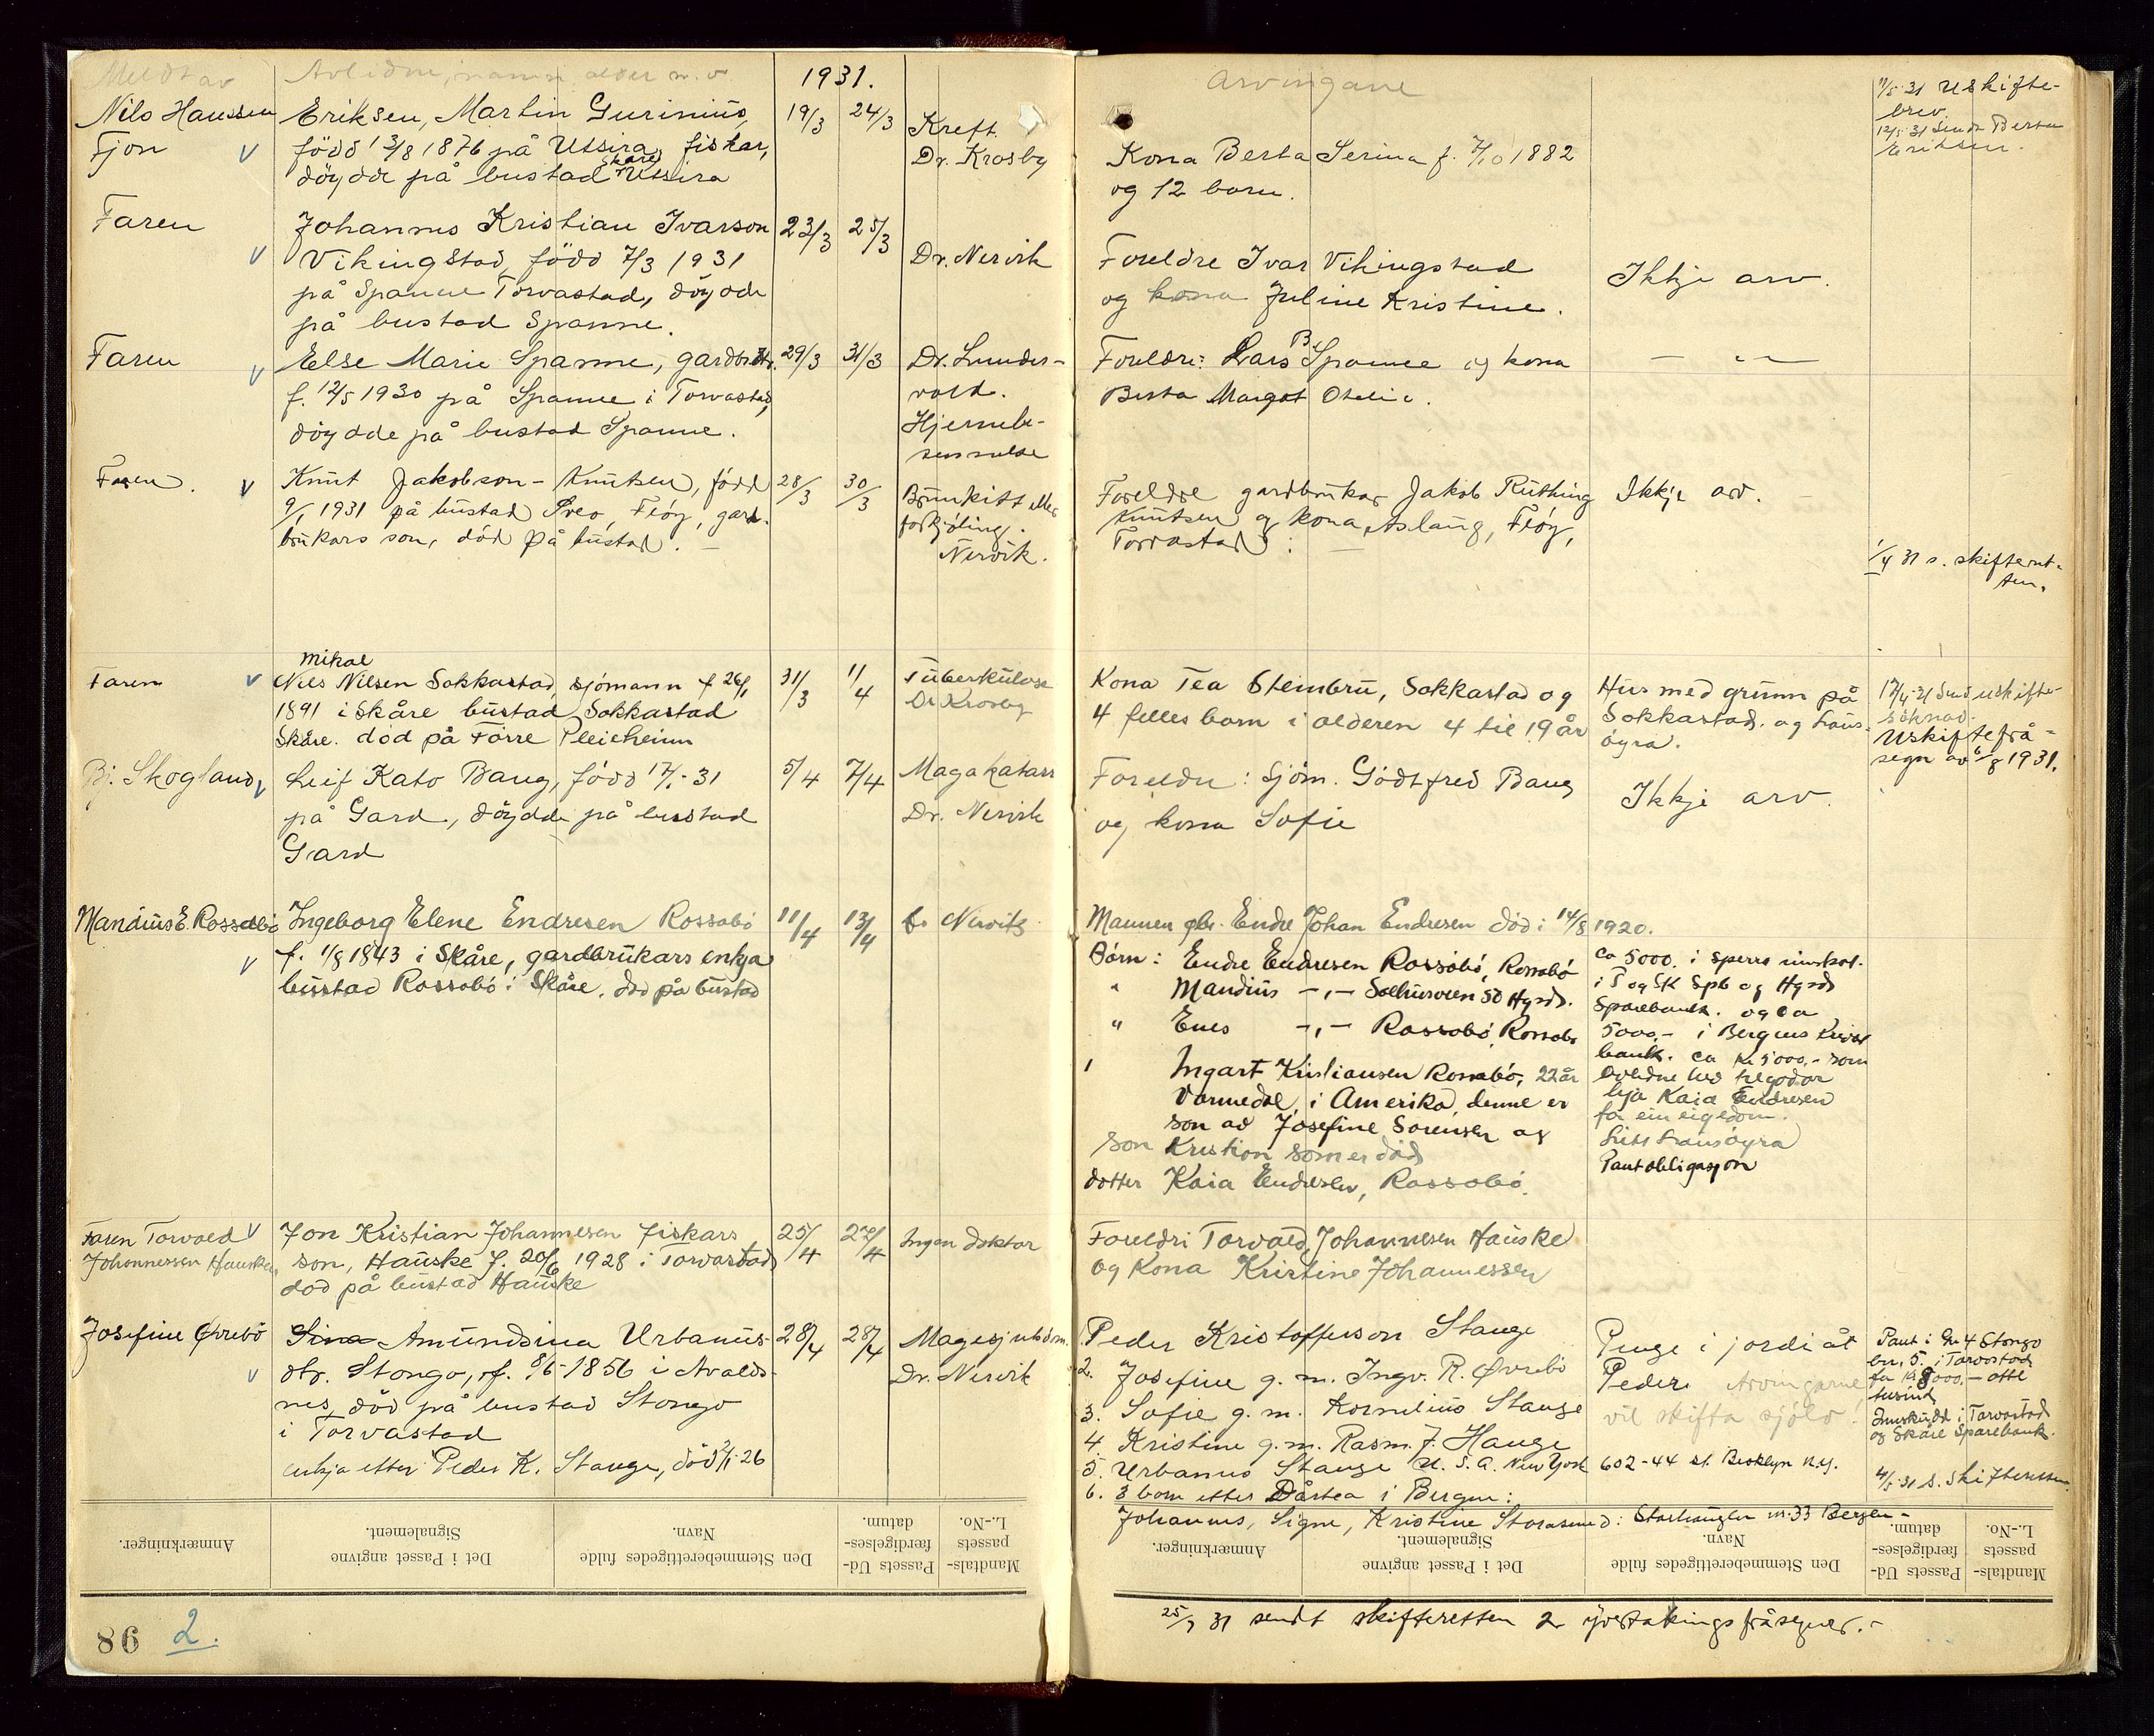 Meldt av
Avlidne, namn, alder m. v.
1931.
Nils Hanssen
Fjon
Eriksen, Martin Gurinius,
född 13/8 1876 på Utsira, fiskar,
Skåre
döydde på bustad Utsira
19/3 24/3
Kreft.
Dr. Krosby
Faren
Johannes Kristian Ivarson
Vikingstad, född 7/3 1931
på Spanne Torvastad, döydde
på bustad Spanne.
23/3 25/3
Dr. Nervik
Faren
Else Marie Spanne, gardbr. dtr.
f. 12/5 1930 på Spanne i Torvastad,
döydde på bustad Spanne.
29/3 31/3
Dr. Lunder-
vold.
Hjernebe-
tennelse
Faren.
Knut Jakobson - Knutsen, född
9/1 1931 på bustad Sveo, Flöy, gard-
brukars son, död på bustad. -
28/3 30/3
Bronkitt eller
forkjöling.
Nervik.
Faren
Mikal
Nils Nilsen Sokkastad, sjömann f 26/1
1891 i Skåre bustad Sokkastad
Skåre. död på Förre Pleieheim
31/3 11/4
Tuberkulose
Dr Krosby
Bj. Skogland
Leif Kato Bang, född 17/1 - 31
på Gard, döydde på bustad
Gard
5/4 7/4
Magakatarr
Dr. Nervik
Mandius E. Rossabö
Ingeborg Elene Endresen Rossabö
f. 1/8 1843 i Skåre, gardbrukars enkja
bustad Rossabö i Skåre. död på bustad
11/4 13/4
Dr Nervik
Faren Torvald
Johannessen Hauske
Jon Kristian Johannesen fiskars
son, Hauske f. 20/6 1928 i Torvastad
död på bustad Hauske
25/4 27/4
Ingen doktor
Josefine Øvrebö
Sina Amundsina Urbanus-
dtr. Stongo, f. 8/6 1856 i Avalds-
nes, död på bustad Stongo
i Torvastad
enkja etter Peder K. Stange, död 2/1 26
28/4 28/4
Magesjukdom.
Dr. Nervik
Anmærkninger.
Det i Passet angivne
Signalement.
Den Stemmeberettigedes fulde
Navn.
Passets Ud-
færdigelses-
datum.
Mandtals-
passets
L.-No.
86 2.
Arvingane
Kona Berta Serina f. 7/10 1882
og 12 born.
11/5 31 Uskifte-
brev.
12/5 31 Sendt Berta
Eriksen.
Foreldre Ivar Vikingstad
og kona Juline Kristine.
Ikkje arv.
Foreldre: Lars B Spanne og kona
Berta Margot Otelie.
— " —
Foreldre gardbrukar Jakob Ruthing
Knutsen og kona Aslaug, Flöy,
Torvastad. —
Ikkje arv.
1/4 31 s. skifteret-
ten.
Kona Tea Steinbru, Sokkastad og
4 felles born i alderen 4 til 19 år
Hus med grunn på
Sokkastad. og laus-
öyra.
17/4-31 Send uskifte-
söknad.
Uskiftefrå-
segn av 6/8 1931.
Foreldre: Sjöm. Godtfred Bang
og kona Sofie
Ikkje arv.
Mannen gbr. Endre Johan Endresen död: 14/8 1920.
Börn: Endre Endresen Rossabö, Rossabö
" Mandius -,,- Solhusveien 50 Hgsd.
" Enes -,,- Rossabö, Rossabö
" Ingart Kristiansen Rossabö, 22 år
Varmedal, i Amerika, denne er
son av Josefine Sorensen og
son Kristian som er död
dotter Kaia Endresen, Rossabö.
ca 5000. i sperra innskot.
i T og SK Spb og Hgsds
Sparebank. og ca
5000,- i Bergens Kredit
bank. ca kr 5000,- som
avlidne hev tilgodar
hja Kaia Endresen
for ein eigedom.
Litt lausöyra
Pantobligasjon
Foreldri Torvald Johannesen Hauske
og Kona Kristine Johannessen
Peder Kristofferson Stange
2. Josefine g. m. Ingv. R. Øvrebö
3. Sofie g. m. Kornelius Stange
4. Kristine g. m. Rasm. J. Hauge
5. Urbanus Stange U. S. A. New York 602-44 st. Brooklyn N.y.
6. 3 born etter Dårtea i Bergen:
Johannes, Signe, Kristine Storasund: Starhausgln nr. 33 Bergen -
Penge i jordi åt
Peder. Arvingarne
vil skifta sjölv.
Pant i Gn 4 Stongo
bn. 5. i Torvastad
for kr 8000,- otte
tusind
Innskudd i Torvastad
og Skåre Sparebank.
4/5 31 s. skifteretten
Anmærkninger.
Det i Passet angivne
Signalement.
Den Stemmeberettigedes fulde
Navn.
Passets Ud-
færdigelses-
datum.
Mandtals-
passets
L.-No.
25/7 31 sendt skifteretten 2 yvertakingsfråsegner. -